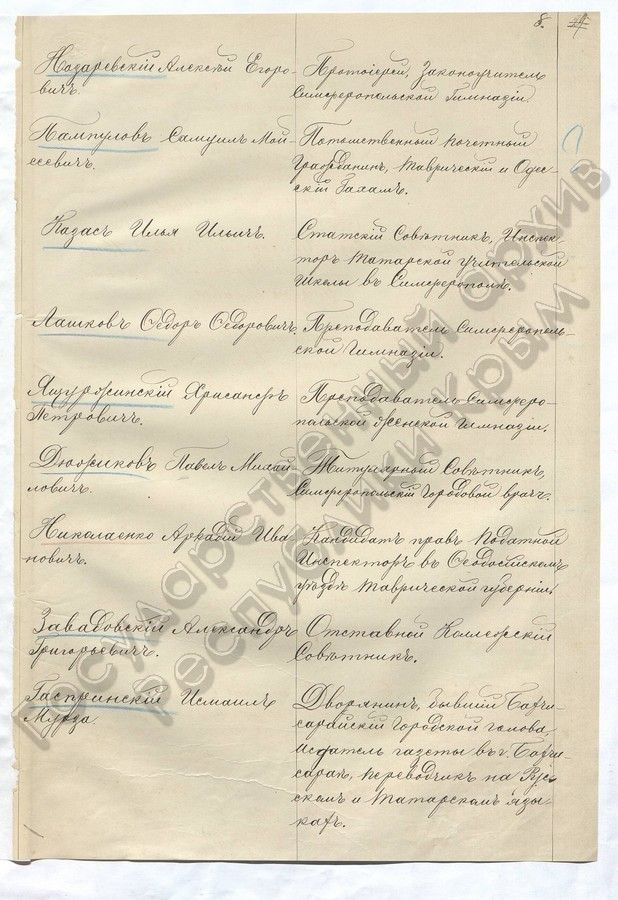 8. 24
Назаревскій Алексѣй Егоро- Протоіерей, Законоучитель
вичъ. Симферопольской Гимназіи.
Пампуловъ Самуилъ Мой- Потомственный почетный
сеевичъ. Гражданинъ, Таврическій и Одес-
скій Гахамъ.
Казасъ Илья Ильичъ. Статскій Совѣтникъ, Инспек-
торъ Татарской учительской
школы въ Симферополѣ.
Лашковъ Ѳедоръ Ѳедоровичъ Преподаватель Симферополь-
ской Гимназіи.
Ящуржинскій Хрисанфъ Преподаватель Симферо-
Петровичъ. польской женской Гимназіи.
Дюжиковъ Павелъ Михай- Титулярный Совѣтникъ,
ловичъ. Симферопольскій Городовой врачъ.
Николаенко Аркадій Ива- Кандидатъ правъ Податной
новичъ. Инспекторъ въ Ѳеодосійскомъ
уѣздѣ Таврической губерніи.
Завадовскій Александръ Отставной Коллежскій
Григорьевичъ. Совѣтникъ.
Гаспринскій Исмаилъ Дворянинъ, бывшій Бахчи-
Мурза сарайскій Городской голова,
издатель газеты въ г. Бахчи-
сараѣ, переводчикъ на Рус-
скомъ и Татарскомъ язы-
кахъ.
Государственный архив
республики крым